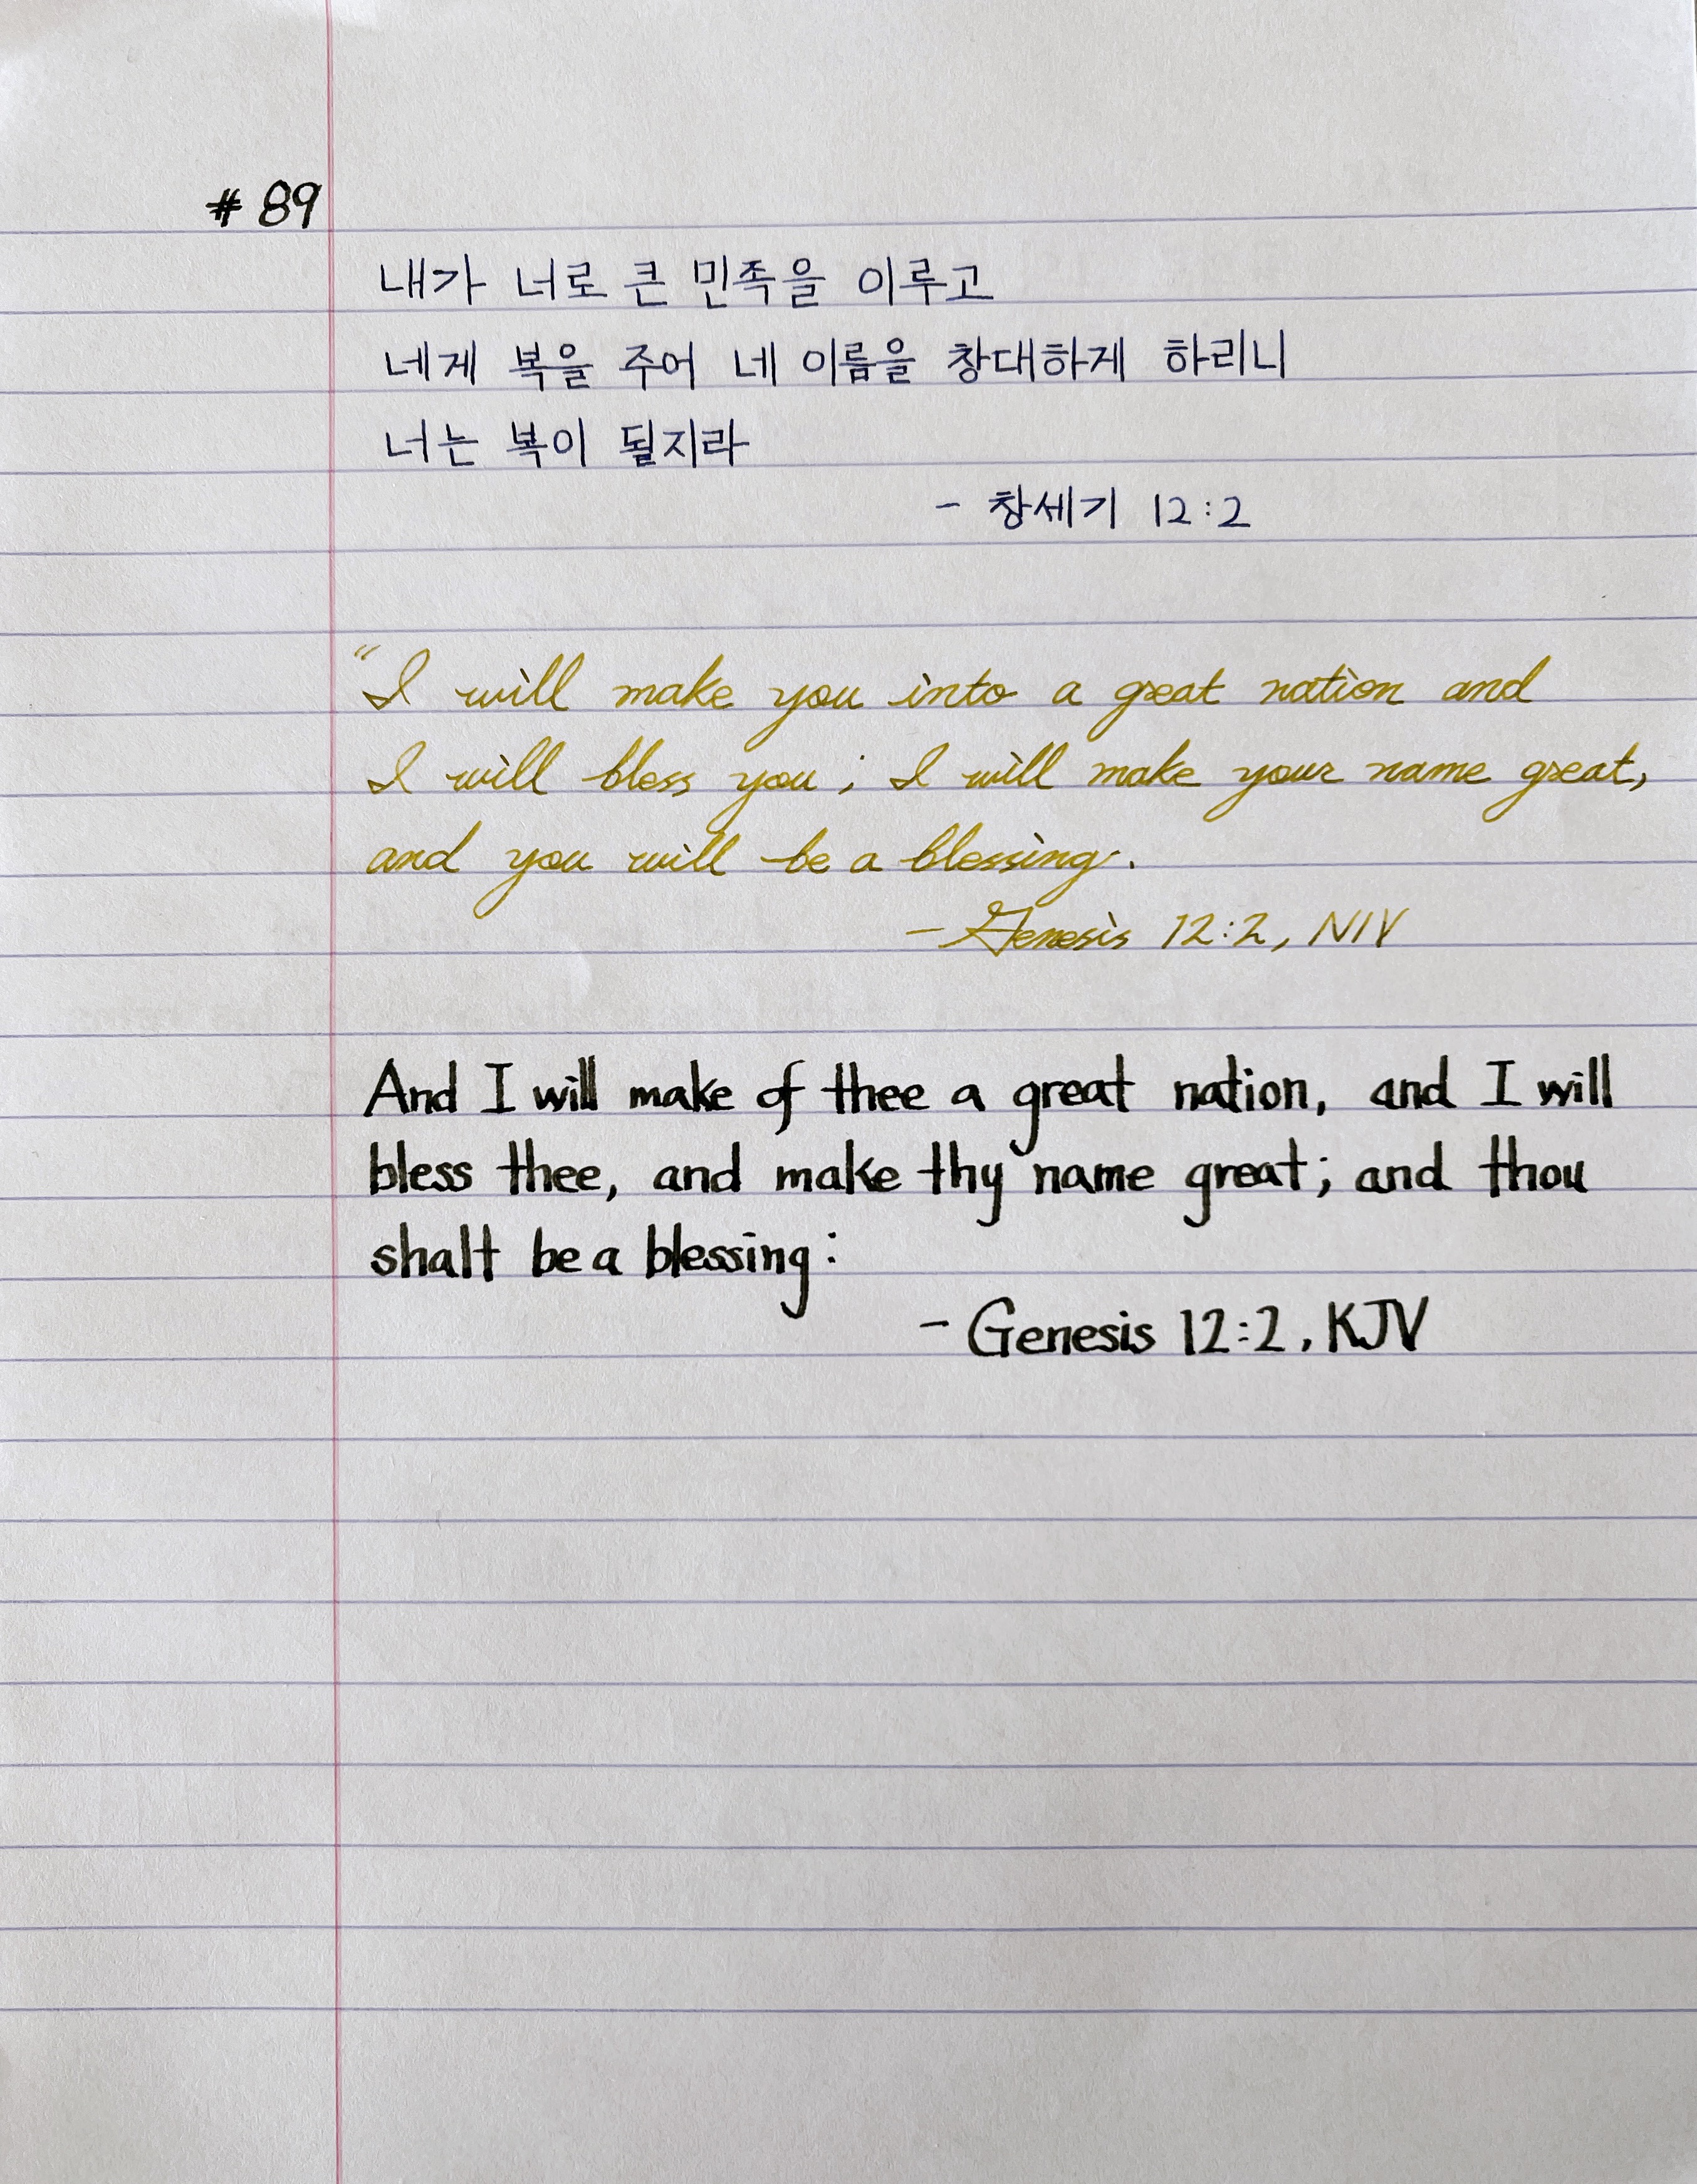 # 89
내가 너로 큰 민족을 이루고
네게 복을 주어 네 이름을 창대하게 하리니
너는 복이 될지라
- 창세기 12:2
"I will make you into a great nation and
I will bless you; I will make your name great,
and you will be a blessing.
- Genesis 12:2, NIV
And I will make of thee a great nation, and I will
bless thee, and make thy name great; and thou
shalt be a blessing:
- Genesis 12:2, KJV